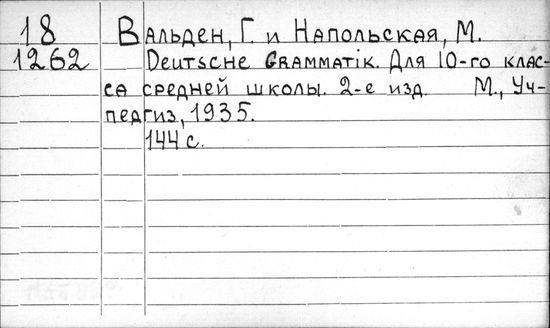 18 Вальден, Г. и Напольская, М.
1262 Deutsche Grammatik. Для 10-го клас-
са средней школы. 2-е изд. М., Уч-
педгиз, 1935.
144 с.